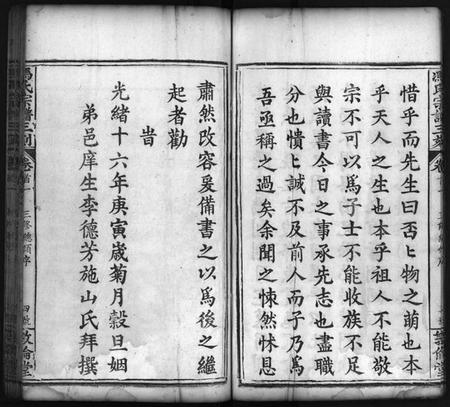 惜乎而先生曰否〻物之萌也本
乎天人之生也本乎祖人不能敬
宗不可以爲子士不能收族不足
與讀書今日之事承先志也盡職
分也憒〻誠不及前人而子乃爲
吾亟稱之過矣余聞之悚然怵息
肅然改容爰備書之以爲後之繼
起者勸
旹
光緒十六年庚寅歲菊月穀旦姻
弟邑庠生李德芳施山氏拜撰
馮氏宗譜三刻
卷首一
三修總順序
敦倫堂